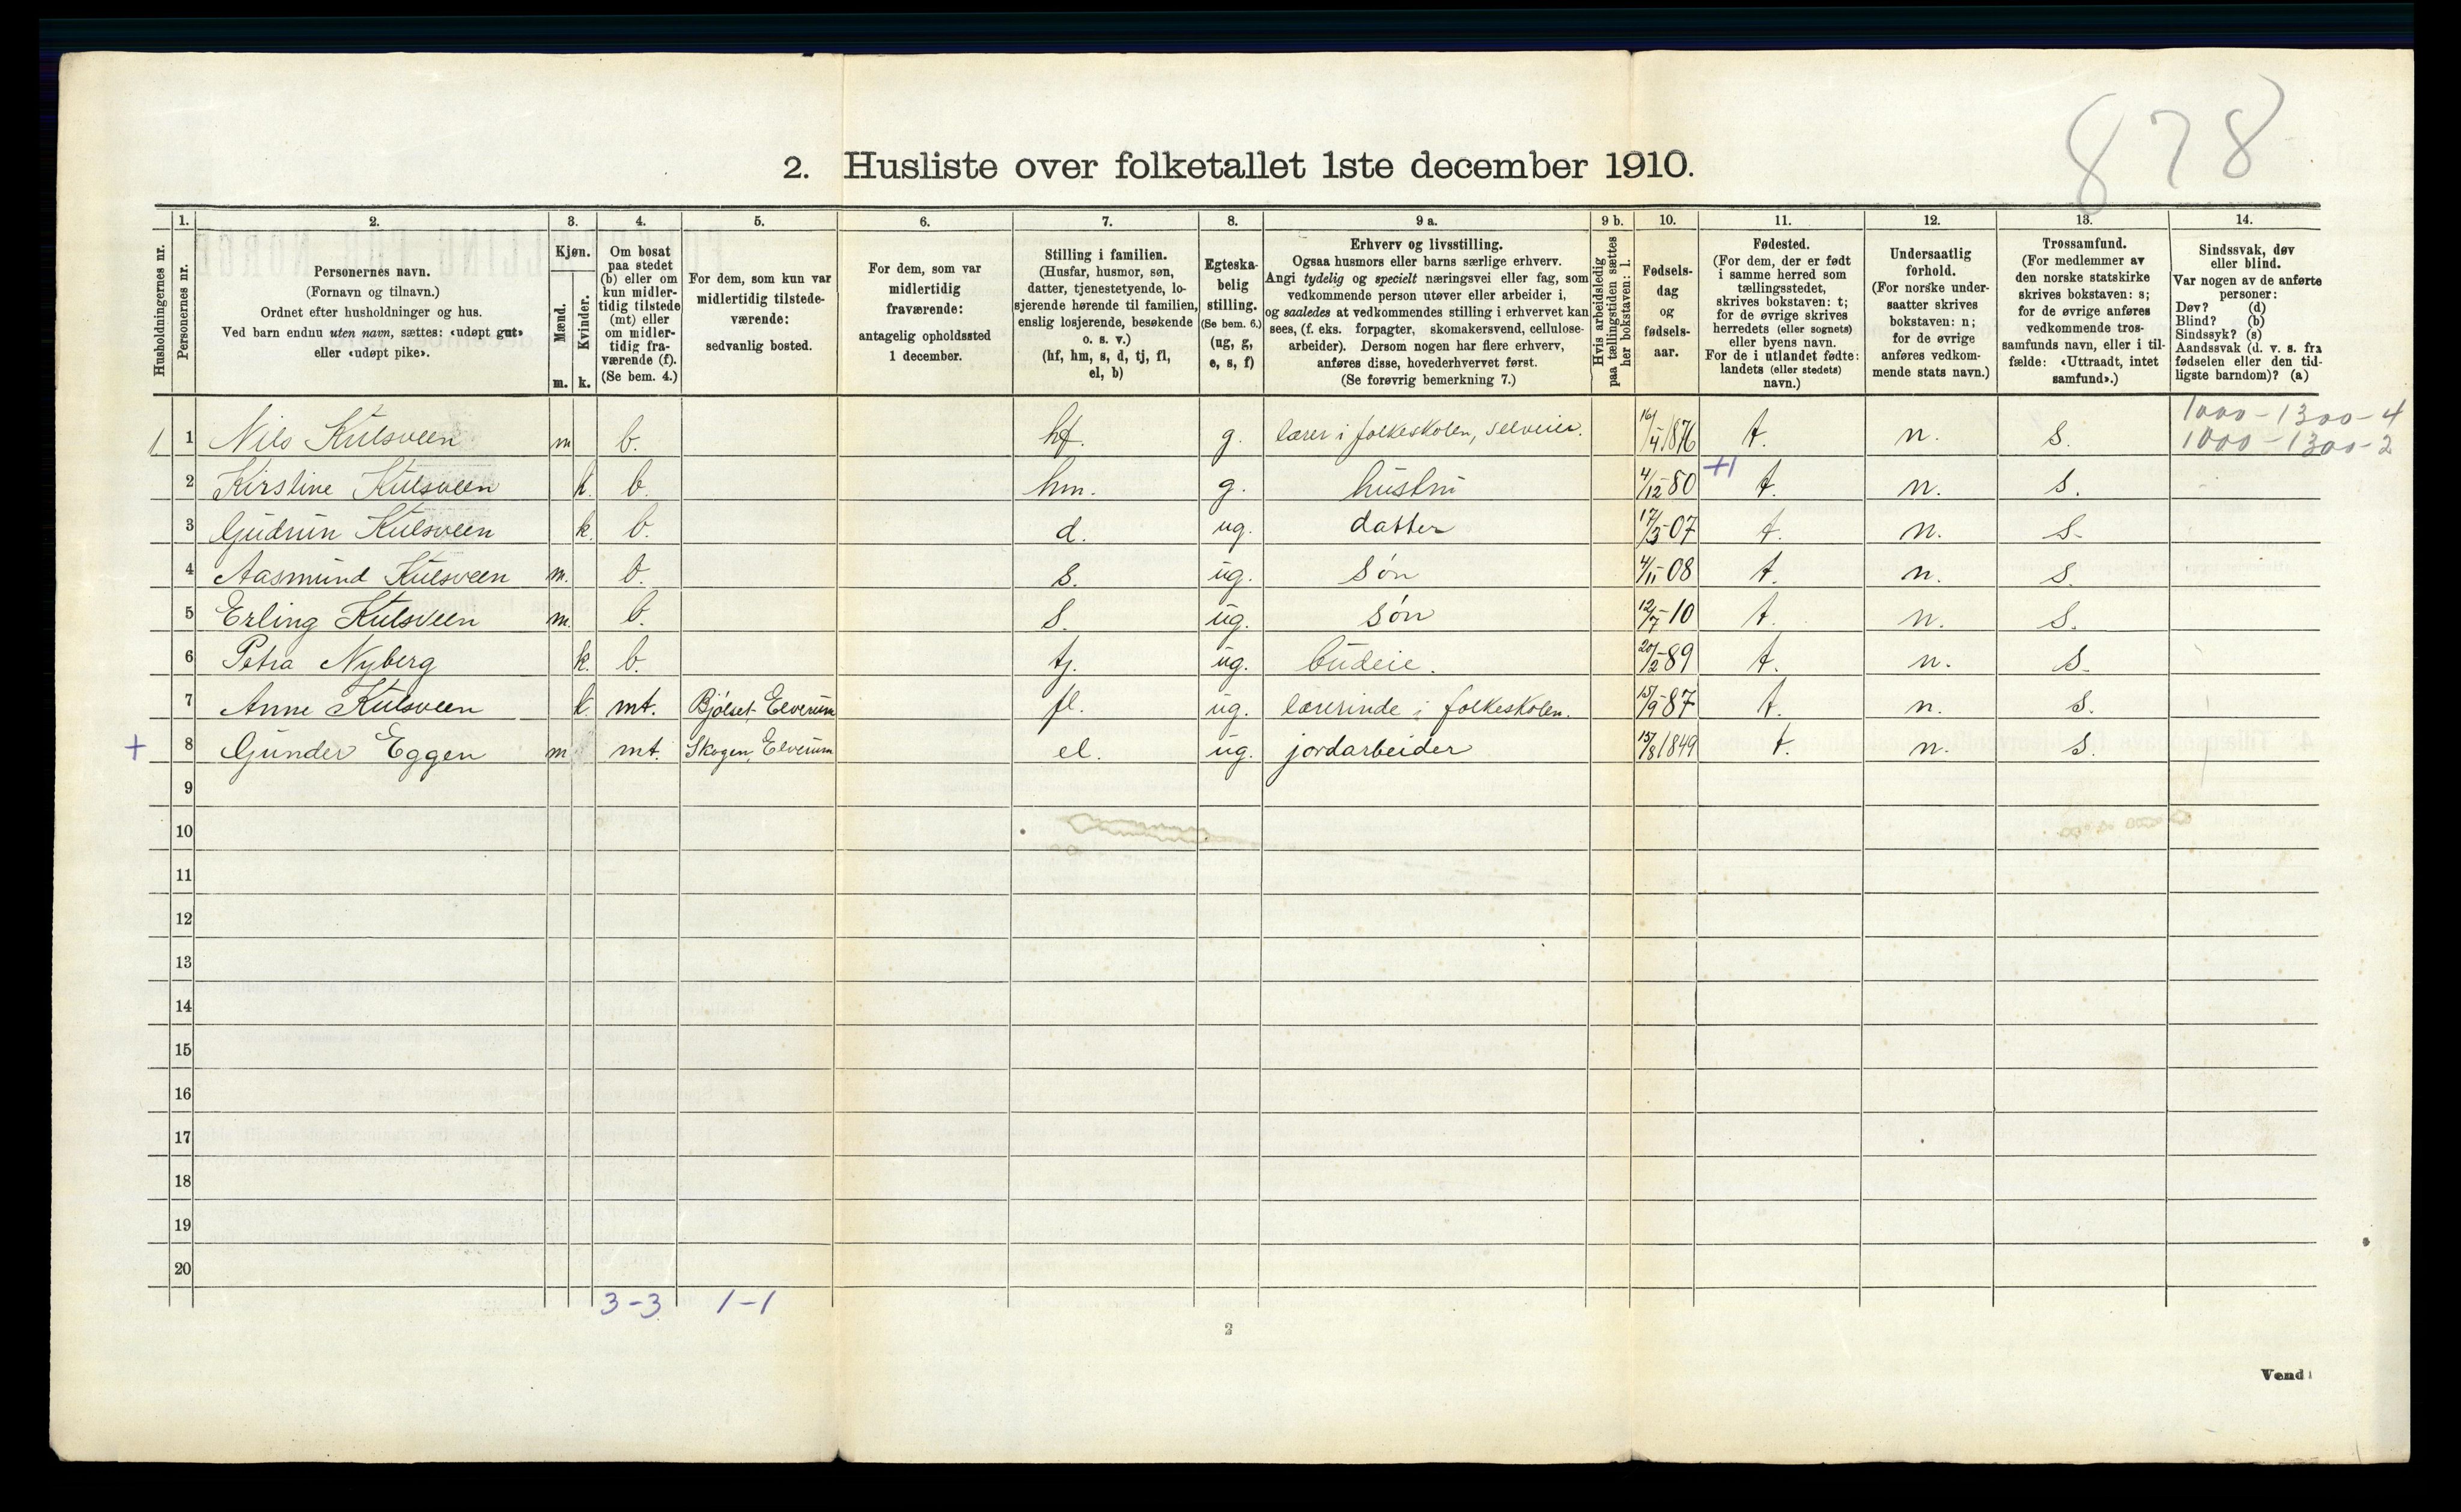 878
2. Husliste over folketallet 1ste december 1910.
Husholdningernes nr.
1. Personernes nr.
2. Personernes navn.
(Fornavn og tilnavn.)
Ordnet efter husholdninger og hus.
Ved barn endnu uten navn, sættes: «udøpt gut»
eller «udøpt pike».
3. Kjøn.
Mænd. m.
Kvinder. k.
4. Om bosat
paa stedet
(b) eller om
kun midler-
tidig tilstede
(mt) eller
om midler-
tidig fra-
værende (f).
(Se bem. 4.)
5. For dem, som kun var
midlertidig tilstede-
værende:
sedvanlig bosted.
6. For dem, som var
midlertidig
fraværende:
antagelig opholdssted
1 december.
7. Stilling i familien.
(Husfar, husmor, søn,
datter, tjenestetyende, lo-
sjerende hørende til familien,
enslig losjerende, besøkende
o. s. v.)
(hf, hm, s, d, tj, fl,
el, b)
8. Egteska-
belig
stilling.
(Se bem. 6.)
(ug, g,
e, s, f)
9 a. Erhverv og livsstilling.
Ogsaa husmors eller barns særlige erhverv.
Angi tydelig og specielt næringsvei eller fag, som
vedkommende person utøver eller arbeider i,
og saaledes at vedkommendes stilling i erhvervet kan
sees, (f. eks. forpagter, skomakersvend, cellulose-
arbeider). Dersom nogen har flere erhverv,
anføres disse, hovederhvervet først.
(Se forøvrig bemerkning 7.)
9 b. Hvis arbeidsledig
paa tællingstiden sættes
her bokstaven: l.
10. Fødsels-
dag
og
fødsels-
aar.
11. Fødested.
(For dem, der er født
i samme herred som
tællingsstedet,
skrives bokstaven: t;
for de øvrige skrives
herredets (eller sognets)
eller byens navn.
For de i utlandet fødte:
landets (eller stedets)
navn.)
12. Undersaatlig
forhold.
(For norske under-
saatter skrives
bokstaven: n;
for de øvrige
anføres vedkom-
mende stats navn.)
13. Trossamfund.
(For medlemmer av
den norske statskirke
skrives bokstaven: s;
for de øvrige anføres
vedkommende tros-
samfunds navn, eller i til-
fælde: «Uttraadt, intet
samfund».)
14. Sindssvak, døv
eller blind.
Var nogen av de anførte
personer:
Døv? (d)
Blind? (b)
Sindssyk? (s)
Aandssvak (d. v. s. fra
fødselen eller den tid-
ligste barndom)? (a)
1000-1300-4
1 1 Nils Kulsveen m b. hf. g. lærer i folkeskolen, selveier. 16/4 1876 t. n. s. 1000-1300-2
2 Kirstine Kulsveen k. b. hm. g. hustru 4/12 80 +1 t. n. s.
3 Gudrun Kulsveen k. b. d. ug. datter 17/5-07 t. n. s.
4 Aasmund Kulsveen m. b. s. ug. søn 4/11-08 t. n. s.
5 Erling Kulsveen m. b. s. ug. søn 12/7-10 t. n. s.
6 Petra Nyberg k. b. tj. ug. budeie. 20/2-89 t. n. s.
7 Anne Kulsveen k. mt. Bjølset Elverum fl. ug. lærerinde i folkeskolen. 15/9-87 t. n. s.
+ 8 Gunder Eggen m mt. Skogen, Elverum el. ug. jordarbeider 15/8 1849 t. n. s.
9
10
11
12
13
14
15
16
17
18
19
20
3-3 1-1
2
Vend!